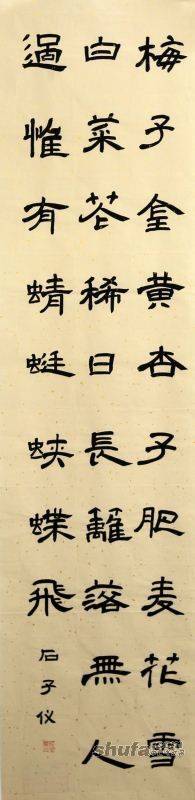 梅子金黄杏子肥麦花雪
白菜花稀日長籬落無人
過惟有蜻蜓蛱蝶飛
石子仪